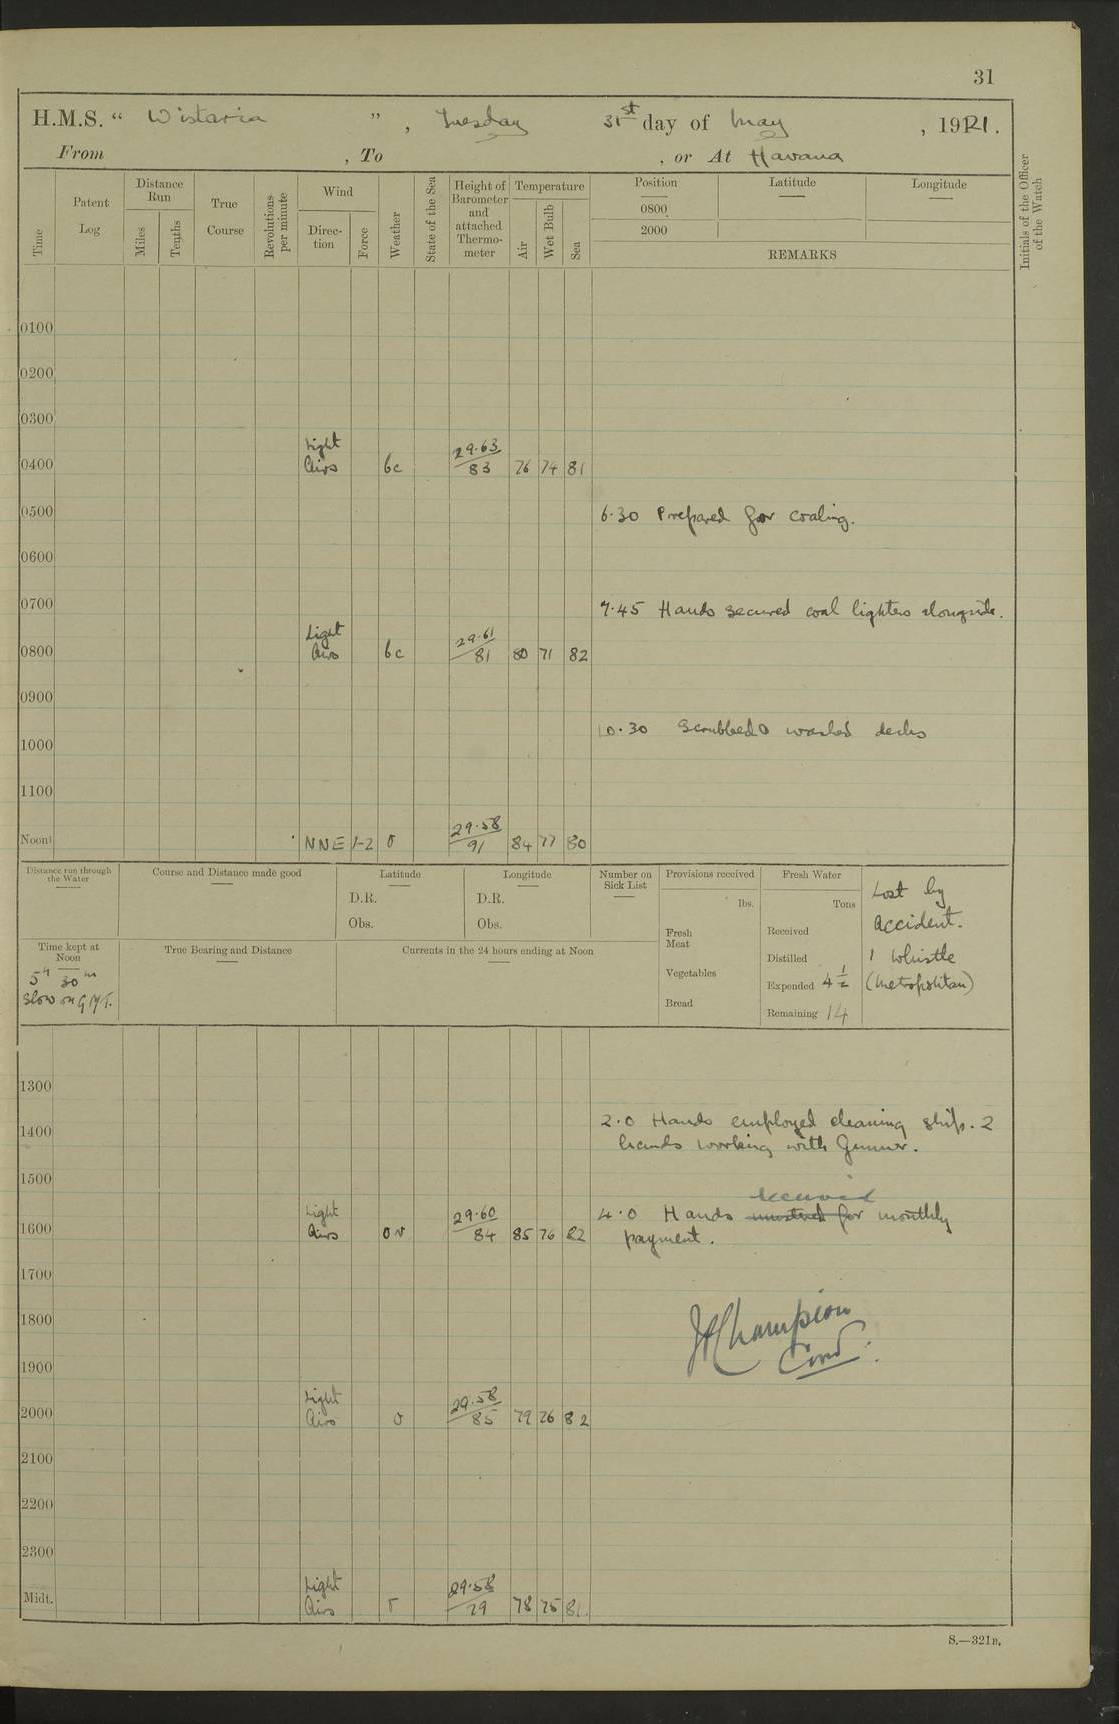 31
H.M.S. " Wistaria ", Tuesday 31st day of May, 1921.
From , To , or At Havana
Time
Patent Log
Distance Run
Miles
Tenths
True Course
Revolutions per minute
Wind
Direction
Force
Weather
State of the Sea
Height of Barometer and attached Thermometer
Temperature
Air
Wet Bulb
Sea
Position
0800
2000
Latitude
Longitude
REMARKS
Initials of the Officer of the Watch
0100
0200
0300
0400 Light Airs bc 29.63 83 76 74 81
0500 6.30 Prepared for coaling.
0600
0700 7.45 Hands secured coal lighters alongside.
0800 Light Airs bc 29.61 81 80 71 82
0900
10.30 Scrubbed & washed decks
1000
1100
Noon NNE 1-2 o 29.58 91 84 77 80
Distance run through the Water
Course and Distance made good
Latitude
D.R.
Obs.
Longitude
D.R.
Obs.
Number on Sick List
Provisions received
lbs.
Fresh Meat
Vegetables
Bread
Fresh Water
Tons
Received
Distilled
Expended 4 1/2
Remaining 14
Lost by
Accident.
1 Whistle
(Metropolitan)
Time kept at Noon
5h 30m
Slow on G.M.T.
True Bearing and Distance
Currents in the 24 hours ending at Noon
1300
2.0 Hands employed cleaning ship. 2
1400
hands working with Gunner.
1500
received
4.0 Hands mustered for monthly
1600 Light Airs 84 29.60 85 76 82
payment.
1700
1800
JHChampion
Comd.
1900
2000 Light Airs o 29.58 85 79 76 82
2100
2200
2300
Midt. Light Airs 29.58 79 78 75 81
S.—321B.